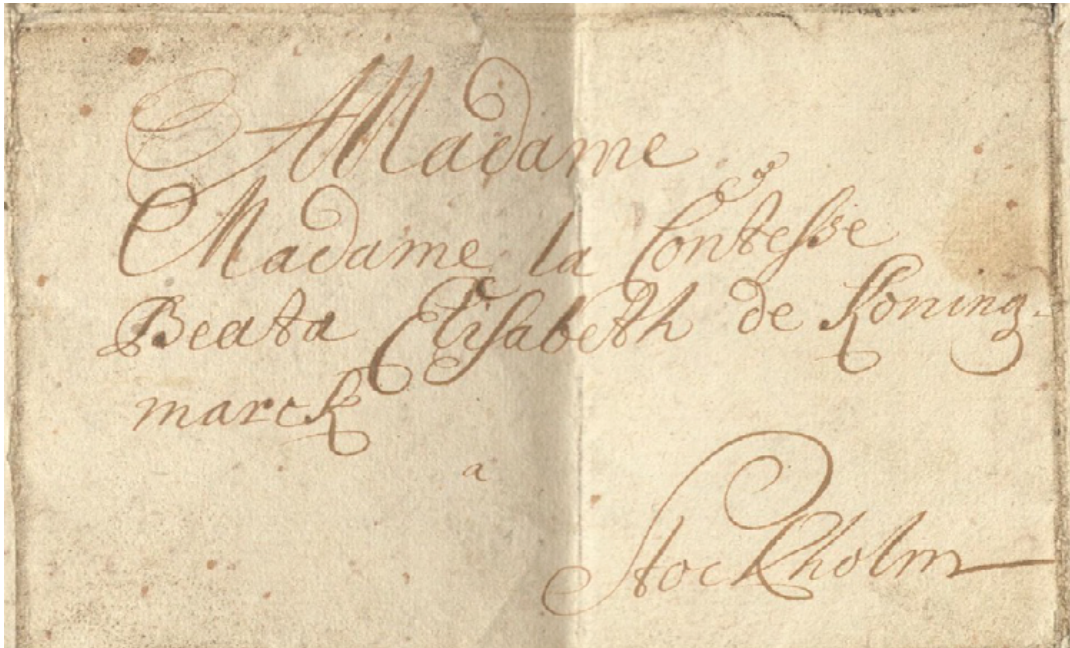 A Madame
Madame la Contesse
Beata Elisabeth de Koning-
marck
a
Stockholm